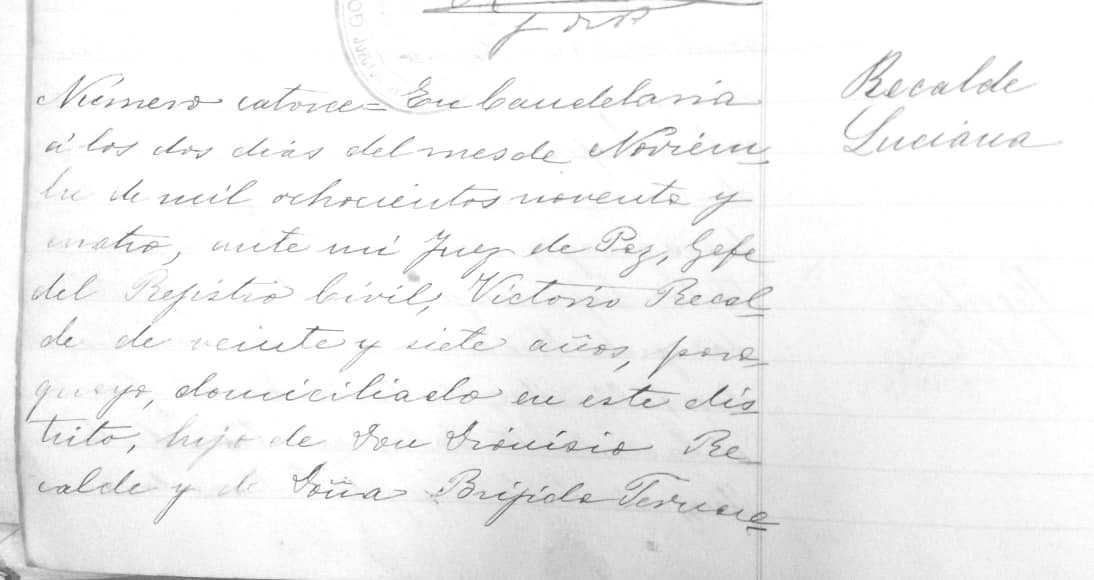 Número catorce = En Candelaria
á los dos dias del mes de Noviem
bre de mil ochocientos noventa y
cuatro, ante mi Juez de Paz, Gefe
del Registro Civil, Victorio Recal
de de veinte y siete años, para
guayo, domiciliado en este dis
trito, hijo de Don Dionisio Re
calde y de Doña Brijida
Recalde
Luciana